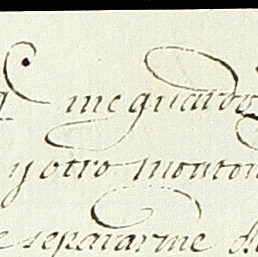 me guardo
y otro monton
separarme de